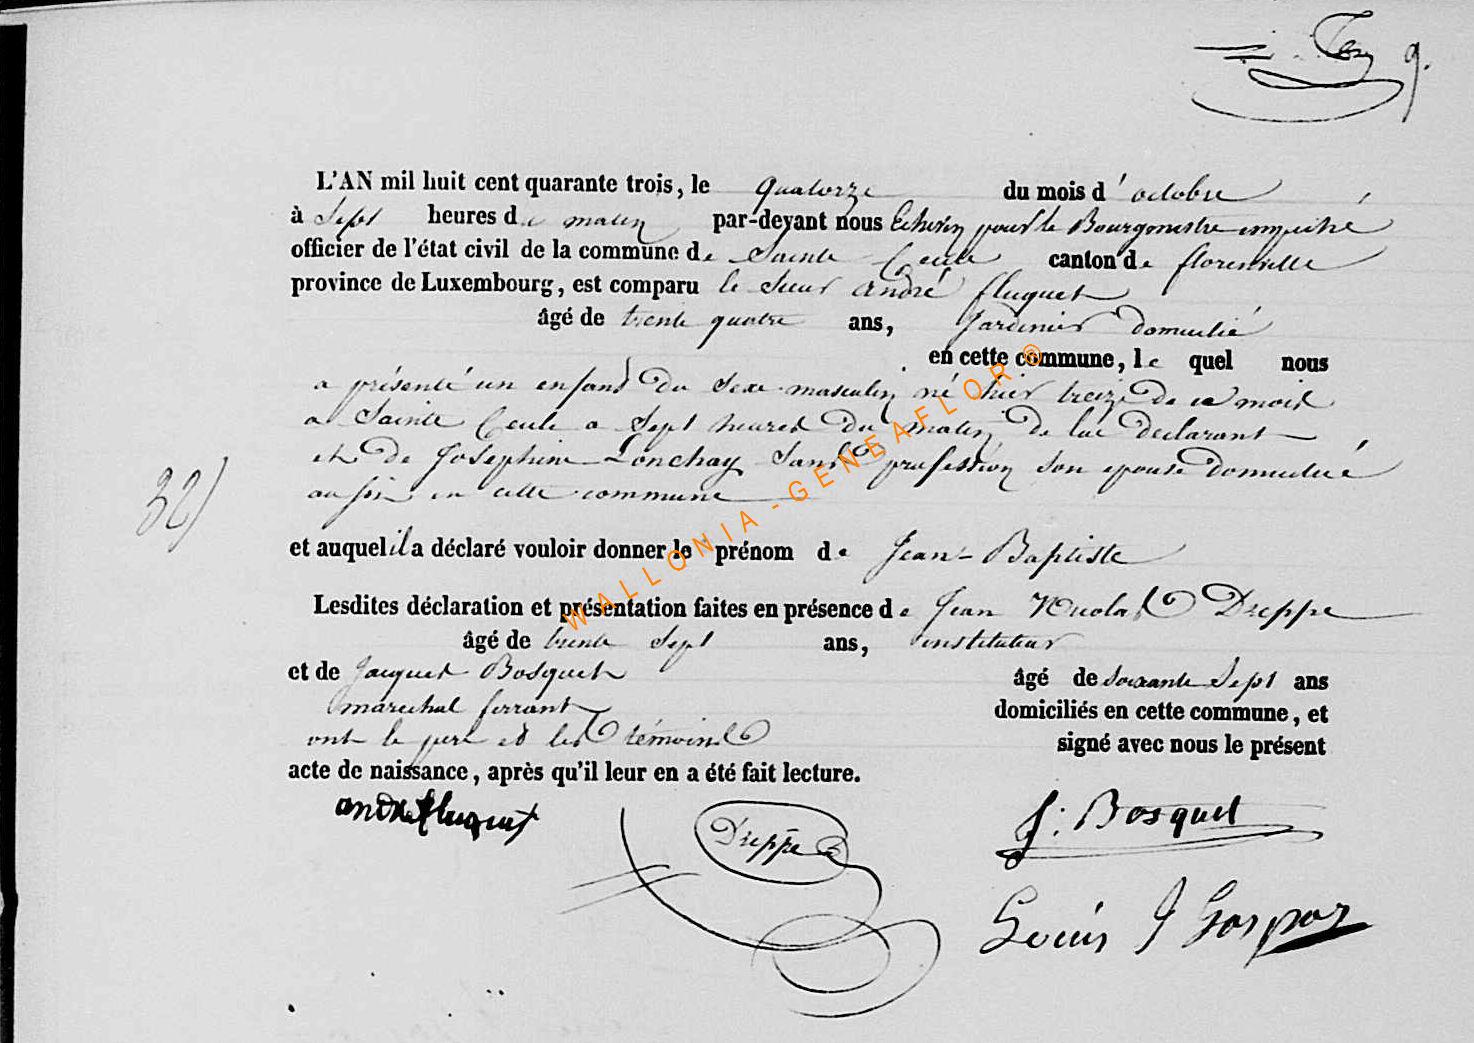 9.
L'AN mil huit cent quarante trois, le quatorze du mois d'octobre
à Sept heures de matin par-devant nous Echevin pour le Bourgmestre empeché
officier de l'état civil de la commune de Sainte Cecile canton de florenville
province de Luxembourg, est comparu le Sieur André fluquet
âgé de trente quatre ans, Jardinier domicilié
en cette commune, le quel nous
a présenté un enfant du Sexe masculin né hier treize de ce mois
a Sainte Cecile a Sept heures du matin de lui declarant
et de Josephine Lonchay Sans profession son epouse domiciliée
aussi en cette commune
32)
et auquel il a déclaré vouloir donner le prénom de Jean-Baptiste
Lesdites déclaration et présentation faites en présence de Jean Nicolas Dreppe
âgé de trente Sept ans, instituteur
et de Jacques Bosquet âgé de soixante Sept ans
marechal ferrant domiciliés en cette commune, et
ont le pere et les témoins signé avec nous le présent
acte de naissance, après qu'il leur en a été fait lecture.
andré fluquet Dreppe J: Bosquet
Louis J Gaspar
WALLONIA-GENEAFLOR ®